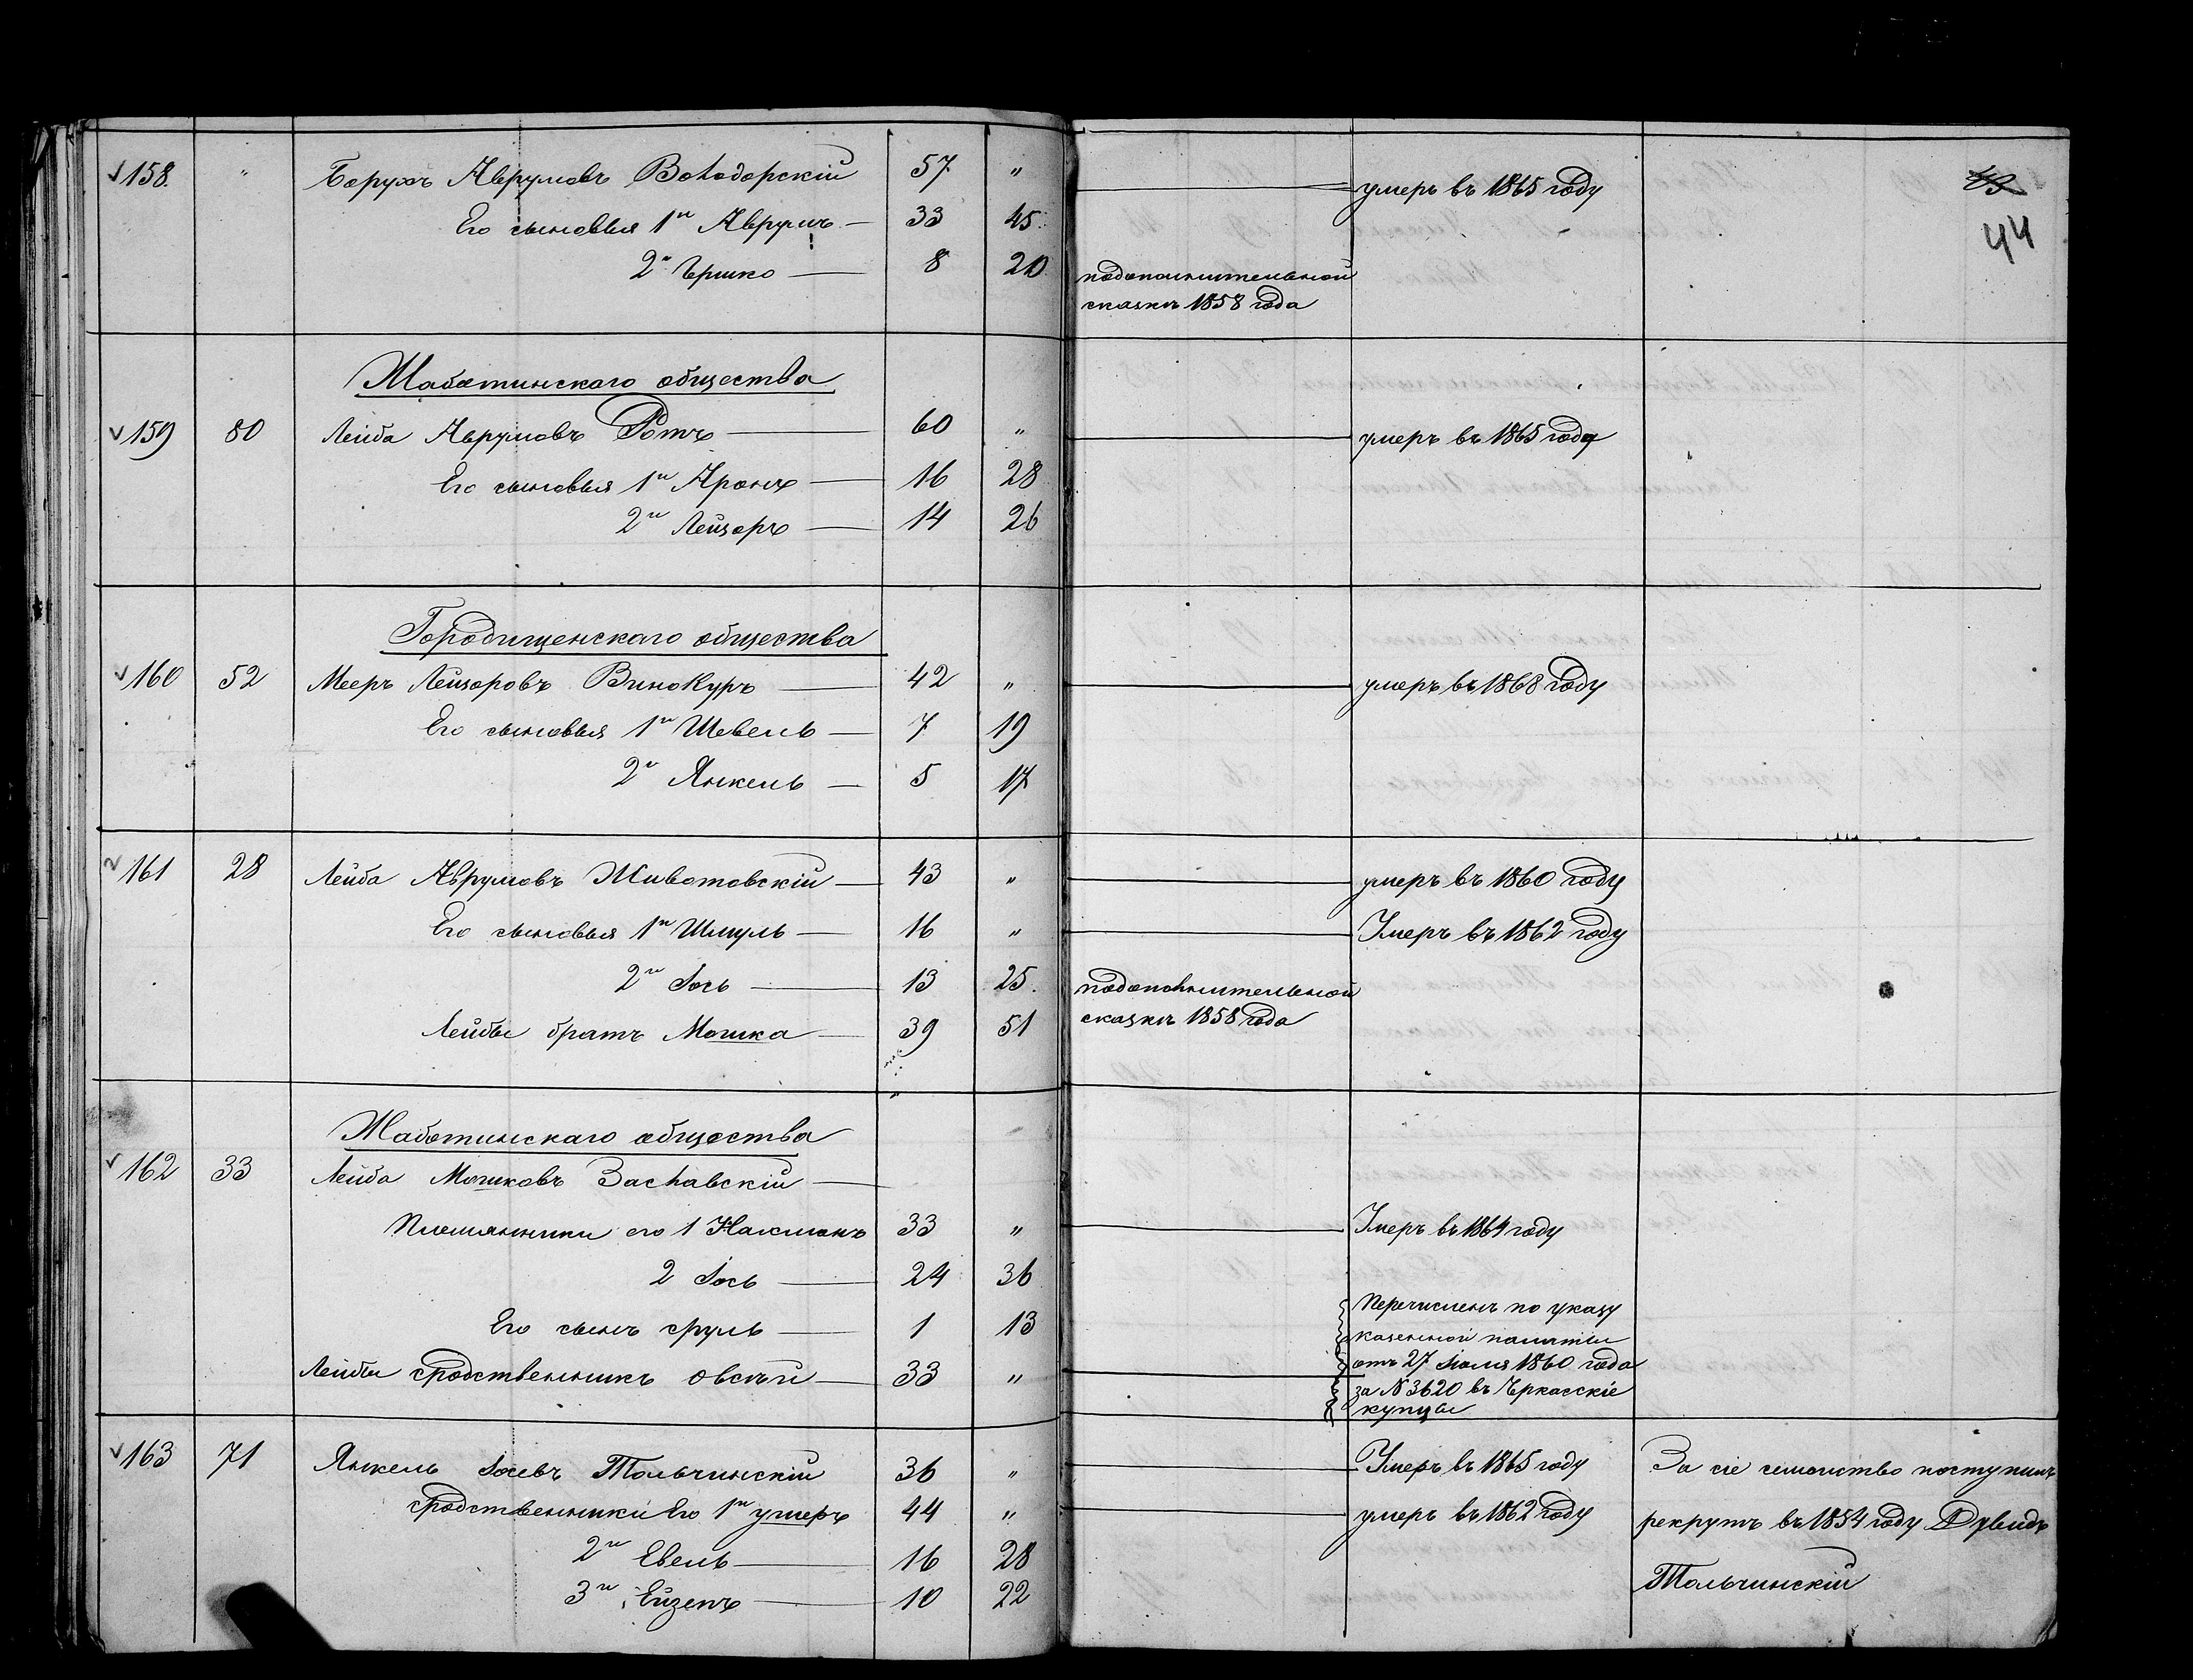 43
44
158. " Борухъ Аврумовъ Володорскій 57 " умеръ въ 1865 году
Его сыновья 1й Аврумъ 33 45
2й Гершко 8 20 подополнительной
сказкѣ 1858 года
Жаботинскаго общества
159 80 Лейба Аврумовъ Ротъ 60 " умеръ въ 1865 году
Его сыновья 1й Аронъ 16 28
2й Лейзоръ 14 26
Городищенскаго общества
160 52 Мееръ Лейзоровъ Винокуръ 42 " умеръ въ 1868 году
Его сыновья 1й Шевель 7 19
2й Янкель 5 17
161 28 Лейба Аврумовъ Животовскій 43 " умеръ въ 1860 году
Его сыновья 1й Шмуль 16 " Умеръ въ 1862 году
2й Іось 13 25 подополнительной
Лейбы братъ Мошка 39 51 сказкѣ 1858 года
Жаботинскаго общества
162 33 Лейба Мошковъ Заславскій
Племянники его 1 Нахманъ 33 " Умеръ въ 1864 году
2 Іось 24 36
Его сынъ сруль 1 13
Лейбы сродственникъ овсѣй 33 "
Перечисленъ по указу
казенной палаты
отъ 27 Іюля 1860 года
за № 3620 въ Черкасскіе
купцы
163 71 Янкель Іосевъ Тольчинскій 36 " Умеръ въ 1865 году За сіе семейство поступилъ
сродственники Его 1й умеръ 44 " умеръ въ 1862 году рекрутъ въ 1854 году Дувидъ
2й Евель 16 28
Тольчинскій
3й Ейзепъ 10 22